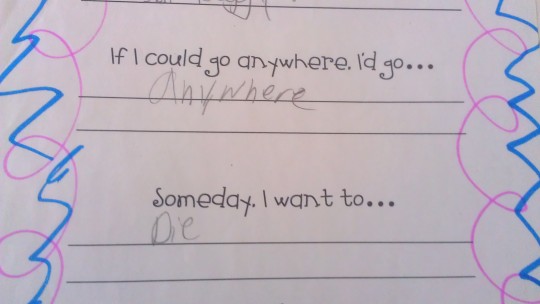 If I could go anywhere, I'd go...
Anywhere
Someday, I want to...
Die